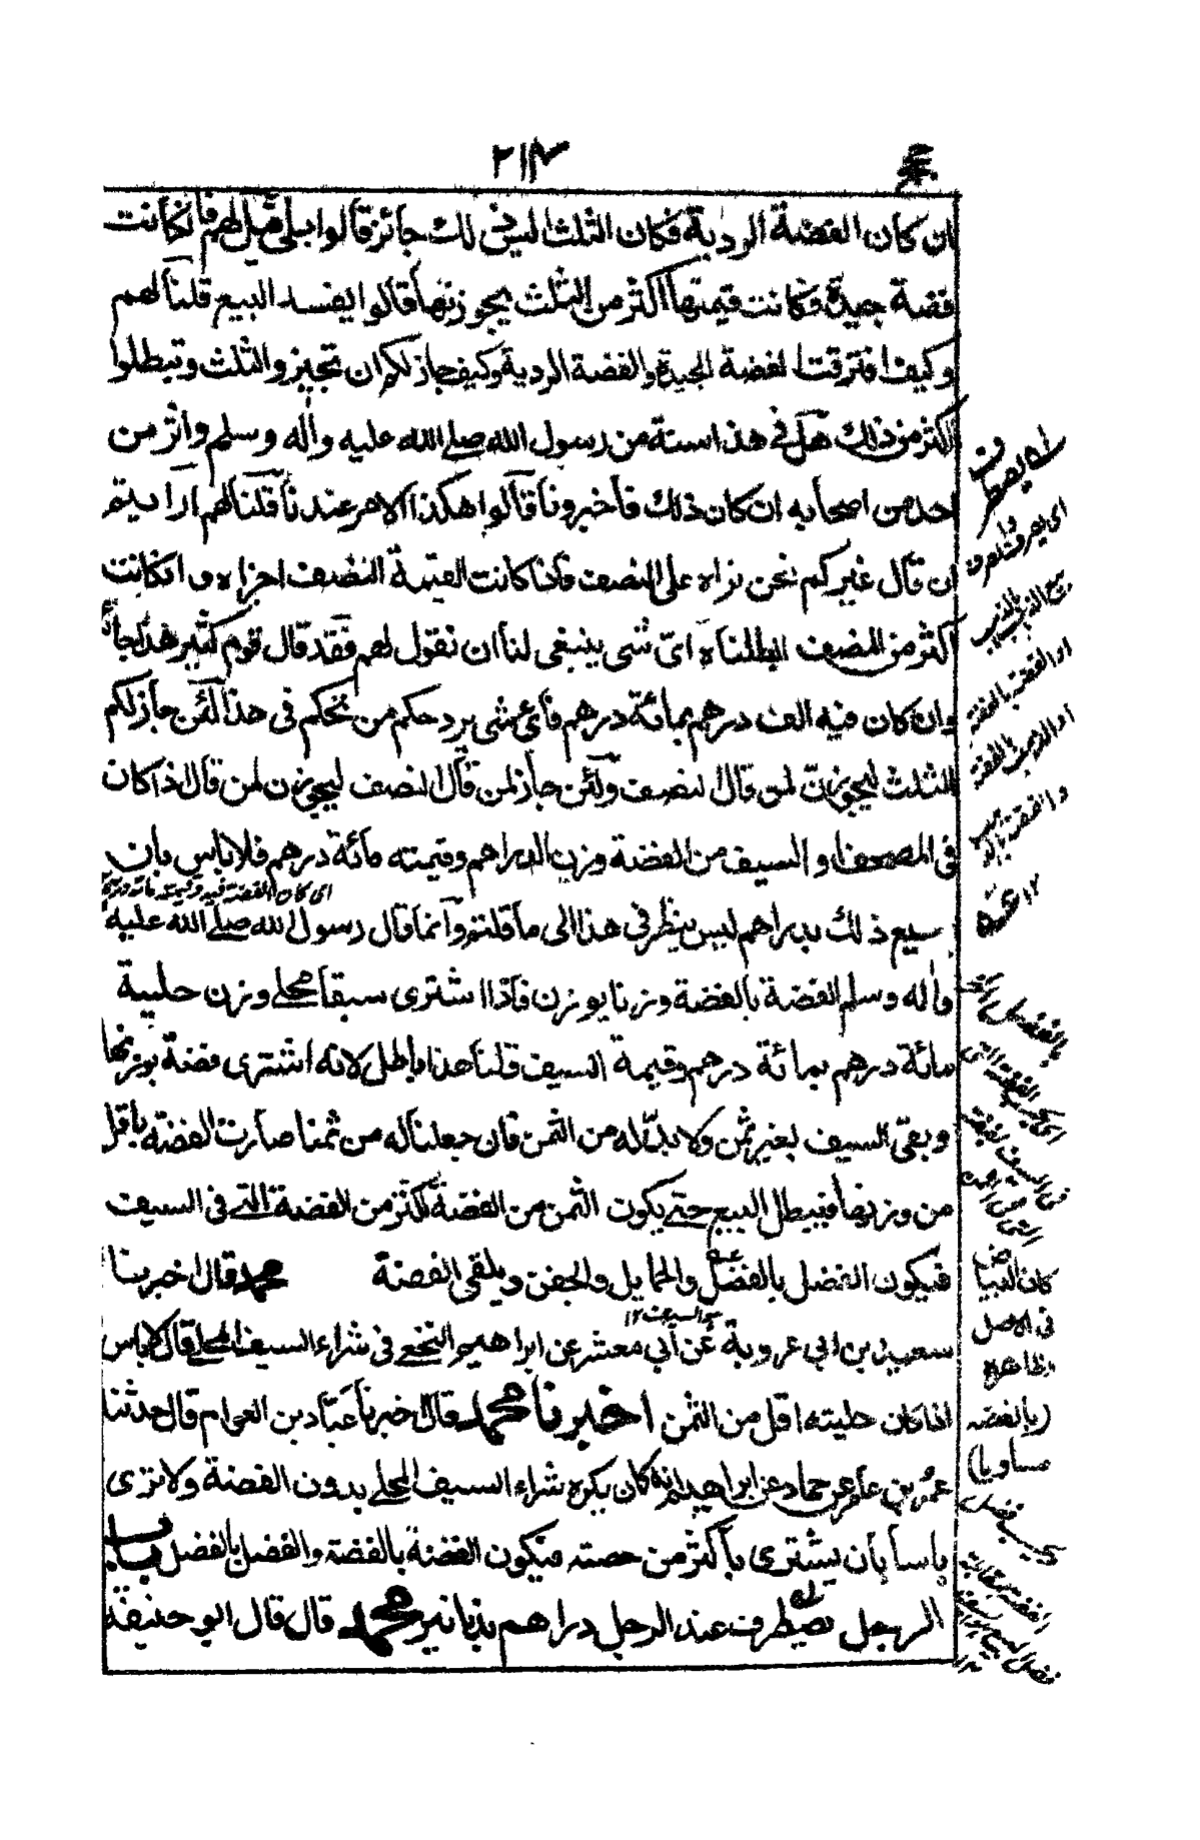 ان كان الفضة الردية فكان الثلث اليس ذلك جائز قالوا بلى قيل لهم فان كانت
فضة جيدة فكانت قيمتها اكثر من الثلث يجوز بها قالوا يفسد البيع قلنا لهم
وكيف افترقت الفضة الجيدة والفضة الردية وكيف جاز لكم ان تجيزوا الثلث وتبطلوا
اكثر من ذلك هل في هذا سنة من رسول الله صلى الله عليه واله وسلم واثر من
احد من اصحابه ان كان ذلك فاخبرونا قالوا هكذا الامر عندنا قلنا لهم ارايتم
ان قال غيركم نحن نراه على النصف فاذا كانت القيمة النصف اجزاه وان كانت
اكثر من النصف ابطلناه اىّ شى ينبغى لنا ان نقول لهم فقد قال قوم كثير هذا جائز
وان كان فيه الف درهم بمائة درهم فاى شى يرد حكم من نحكم فى هذا لئن جاز لكم
الثلث ليجوزن لمن قال النصف ولئن جاز لمن قال النصف ليجوزن لمن قال اذا كان
فى المصحف او السيف من الفضة وزن الدراهم وقيمته مائة درهم فلا باس بان
اى كان الفضة فيه وقيمته مائة درهم
يبيع ذلك بدراهم ليس ينظر فى هذا الى ما قلتم وانما قال رسول الله صلى الله عليه
واله وسلم الفضة بالفضة وزنا بوزن فاذا اشترى سيفا محلى وزن حلية
مائة درهم بمائة درهم وقيمة السيف قلنا هذا باطل لانه اشترى فضة بوزنها
وبقى السيف بغير ثمن ولا بدّ له من الثمن فان جعلنا له من ثمنا صارت الفضة باقل
من وزنها فيبطل البيع حتى يكون الثمن من الفضة اكثر من الفضة التى فى السيف
فيكون الفضل بالفضل والحمايل والجفن ويلقى الفضة محمد قال اخبرنا
سعيد بن ابى عروبة عن ابي معشر عن ابراهيم النخعى فى شراء السيف المحلى قال لا باس
اذا كان حليته اقل من الثمن اخبرنا محمد قال اخبرنا عباد بن العوام قال حدثنا
عمر بن عامر عن حماد عن ابراهيم انه كان يكره شراء السيف المحلى بدون الفضة ولا نرى
باسا بان يشترى باكثر من حصته فيكون الفضة بالفضة والفضل بالفضل باب
الرجل يصطرف عند الرجل دراهم بدنانير محمد قال قال ابو حنيفة
له يصطرف
بيع الذهب بالذهب
او الفضة بالفضة
كان البياض
فى الاصل
ظاهره
(بالفضه
مساويا)